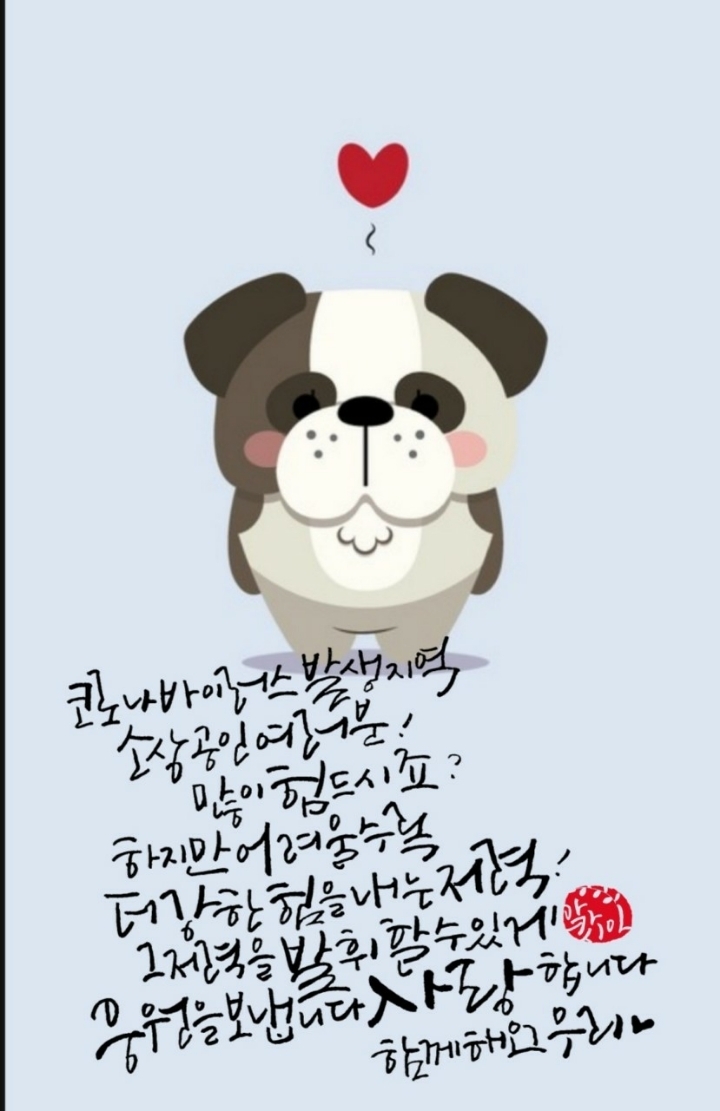 코로나바이러스 발생지역
소상공인 여러분!
많이 힘드시죠?
하지만 어려울수록
더 강한 힘을 내는 저력!
그 저력을 발휘할 수 있게
응원을 보냅니다 사랑합니다
함께해요 우리